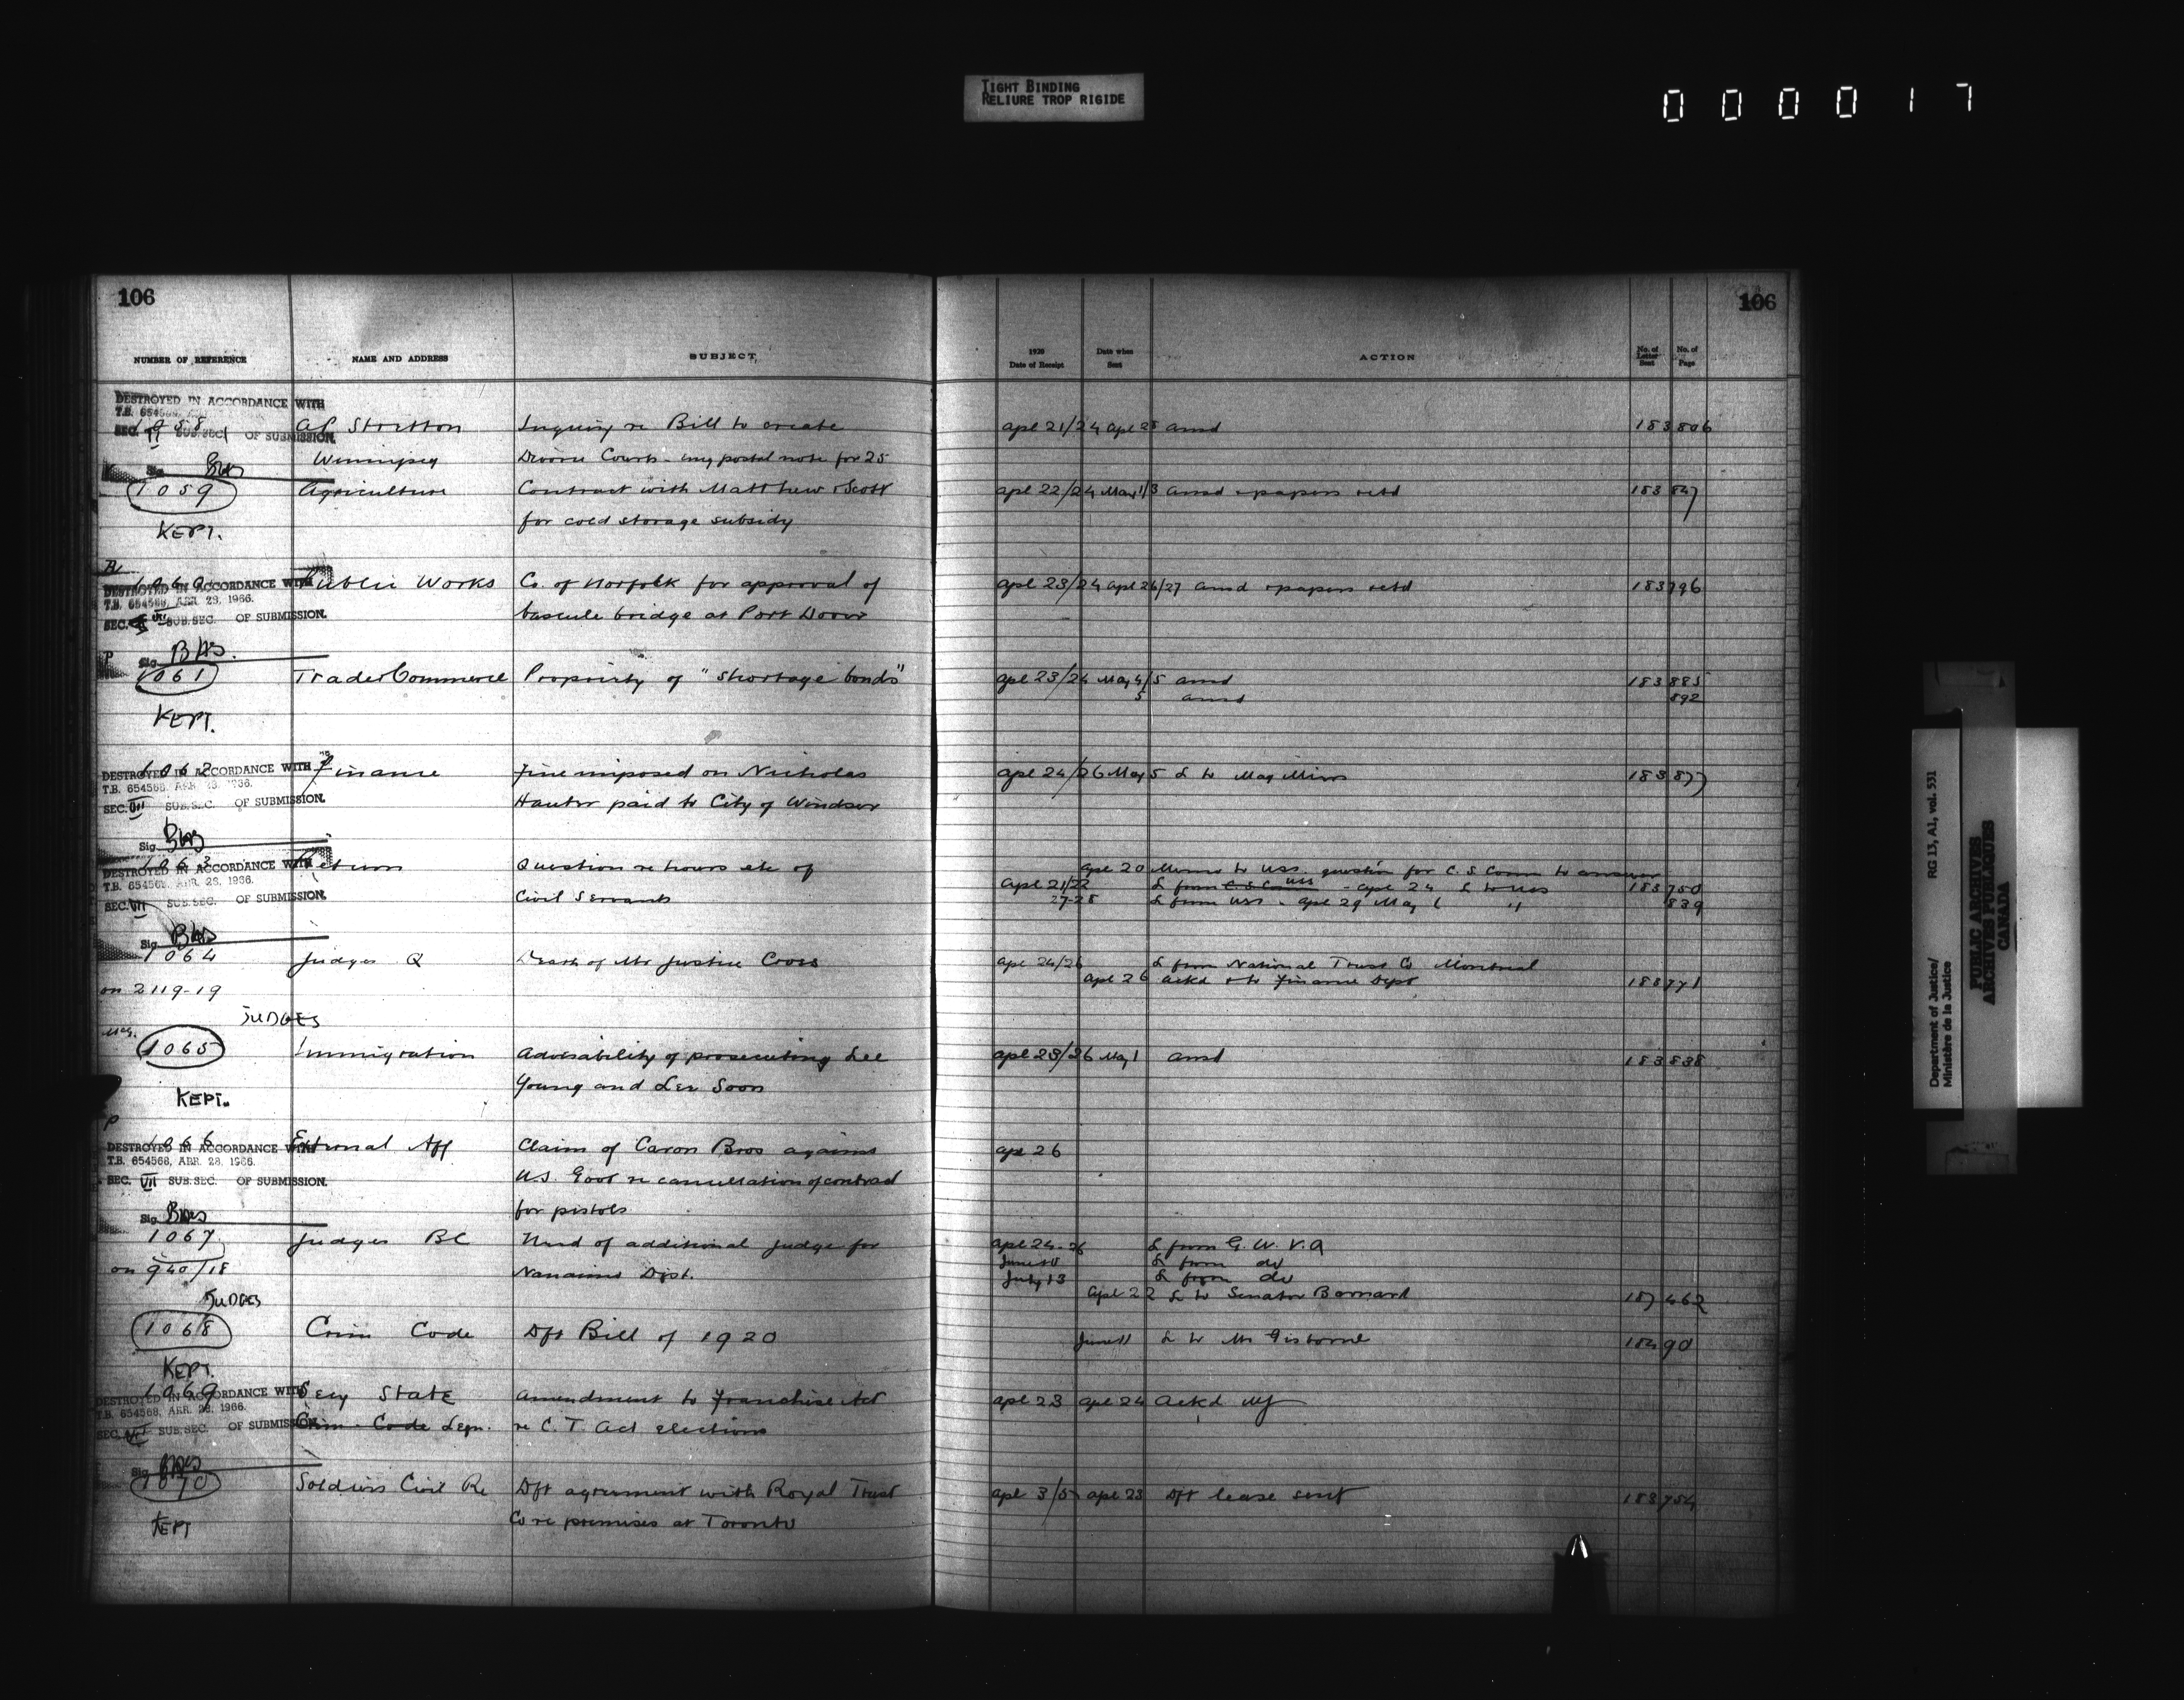 TIGHT BINDING
RELIURE TROP RIGIDE
000017
106
106
NUMBER OF REFERENCE NAME AND ADDRESS SUBJECT 1920 Date of Receipt Date when Sent ACTION No. of Letter Sent No. of Page
DESTROYED IN ACCORDANCE WITH
T.B. 654568
1058 AP Stretton Inquiry re Bill to create apl 21/24 apl 28 ansd 183 806
SEC. VI SUB.SEC. 1 OF SUBMISSION.
Winnipeg Divorce Courts - my postal note for 25
Sig.
1059 Agriculture Contract with Matthew Scott apl 22/24 May 1/3 ansd & papers retd 183 847
for cold storage subsidy
KEPT.
1060 Public Works Co. of Norfolk for approval of apl 23/24 apl 26/27 ansd & papers retd 183 796
DESTROYED IN ACCORDANCE WITH
T.B. 654568, APR. 28, 1966.
bascule bridge at Port Dover
SEC. VII SUB.SEC. OF SUBMISSION.
Sig.
P
1061 Trade & Commerce Propriety of "Shortage bonds" apl 23/24 May 4/5 ansd 183 885
5 ansd 892
KEPT.
1062 Finance Fine imposed on Nicholas apl 24/26 May 5 L to Mag Mins 183 877
DESTROYED IN ACCORDANCE WITH
T.B. 654568, APR. 28, 1966.
paid to City of Windsor
SEC. VII SUB.SEC. OF SUBMISSION.
Sig.
1063 Return Question re hours etc of apl 20 Memo to USS question for C.S. Comm to answer
DESTROYED IN ACCORDANCE WITH
T.B. 654568, APR. 28, 1966.
apl 21/22 L from USS - apl 24 L to USS 183 750
SEC. VII SUB.SEC. OF SUBMISSION.
Civil Servants 27-28 L from USS - apl 29 May 1 " 839
Sig.
1064 Judges Q Death of Mr Justice Cross apl 24/26 L from National Trust Co Montreal
apl 26 ackd & to Finance Dept 183 771
on 2119-19
JUDGES
1065 Immigration Advisability of prosecuting Lee apl 23/26 May 1 ansd 183 838
Young and Lee Soon
KEPT.
P
1066 External Aff Claim of Caron Bros against apl 26
DESTROYED IN ACCORDANCE WITH
T.B. 654568, APR. 28, 1966.
U.S. Govt re cancellation of contract
SEC. VII SUB.SEC. OF SUBMISSION.
for pistols
Sig.
1067 Judges BC Need of additional judge for apl 24-26 L from G.W.V.A
on 940/18 Nanaimo Dist. June L from do
July 13 L from do
JUDGES apl 22 L to Senator Barnard 187 462
1068 Crim Code Dft Bill of 1920 June 11 L to Mr Gisborne 184 90
KEPT.
1069 Secy State amendment to Franchise Act apl 23 apl 24 Ackd
DESTROYED IN ACCORDANCE WITH
T.B. 654568, APR. 28, 1966.
Crim Code Legn. re C.T. Act elections
SEC. VII SUB.SEC. OF SUBMISSION.
Sig.
1070 Soldiers Civil Re Dft agreement with Royal Trust apl 3/5 apl 23 Dft lease sent 183 754
Co re premises at Toronto
KEPT
Department of Justice/ RG 13, A1, vol. 531
Ministère de la Justice
PUBLIC ARCHIVES
ARCHIVES PUBLIQUES
CANADA